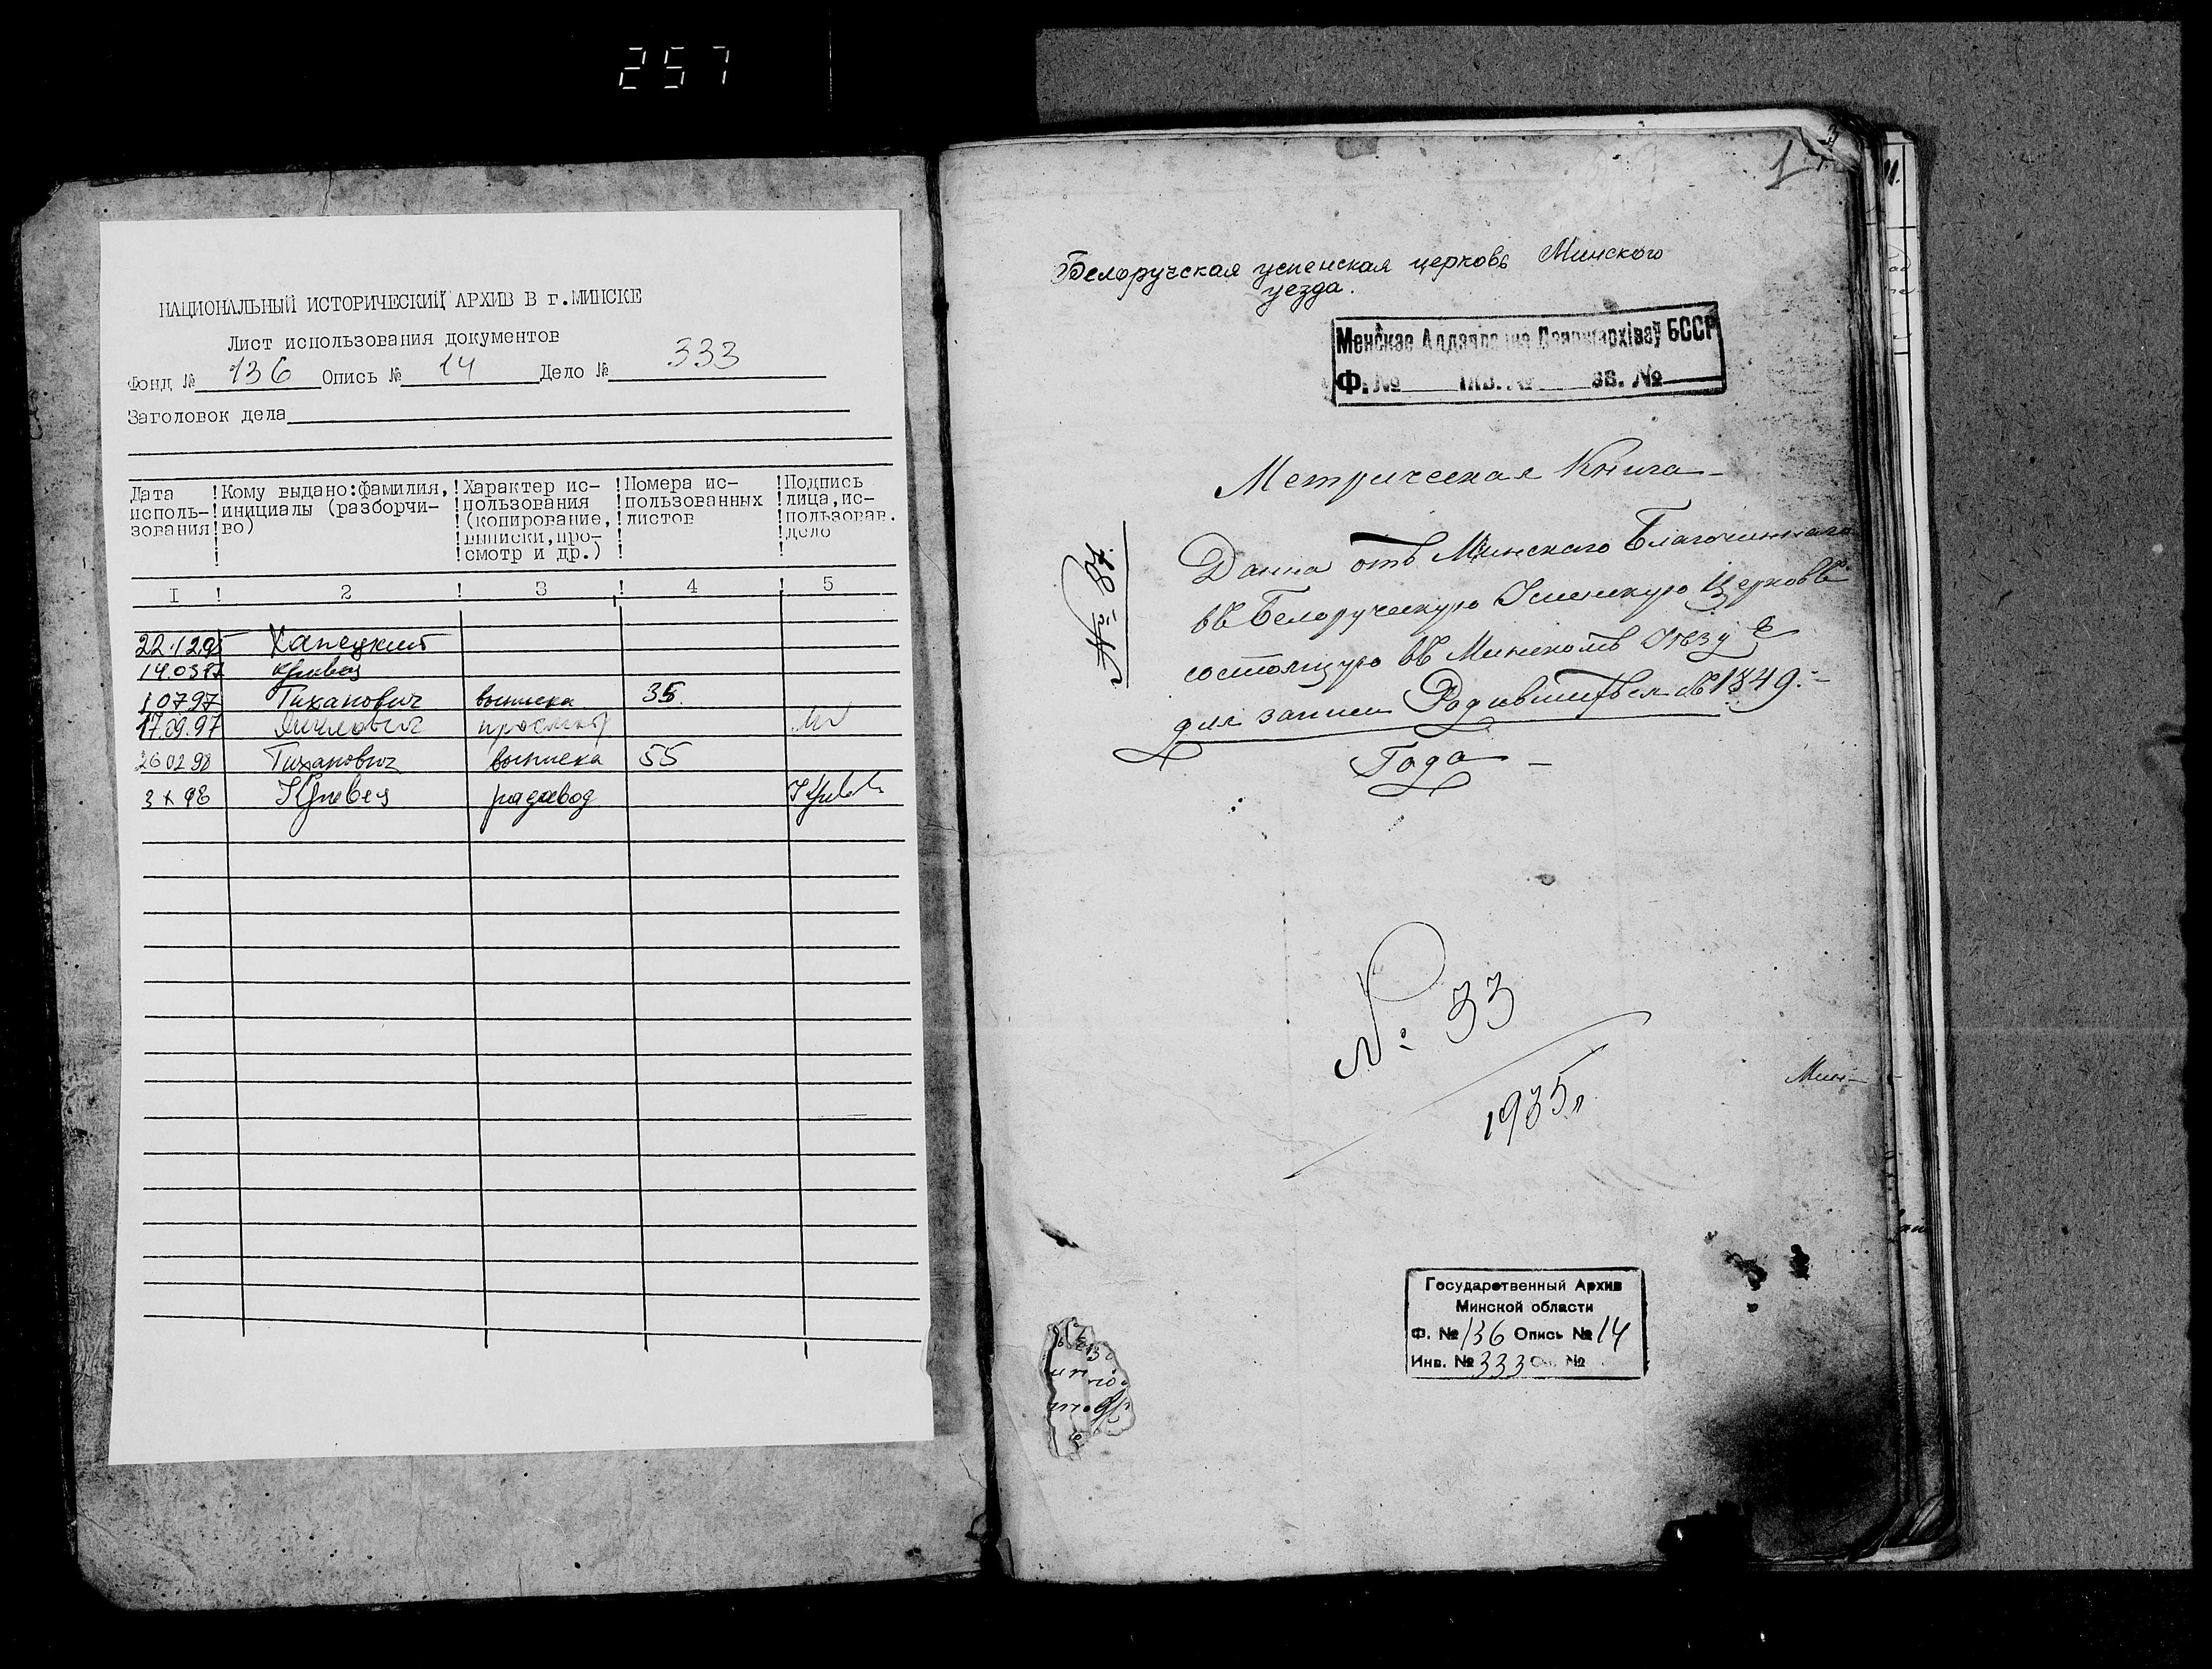 257
НАЦИОНАЛЬНЫЙ ИСТОРИЧЕСКИЙ АРХИВ В г.МИНСКЕ
Лист использования документов
Фонд № 136 Опись № 14 Дело № 333
Заголовок дела
Дата !Кому выдано:фамилия,!Характер ис- !Номера ис- !Подпись
исполь-!инициалы (разборчи- !пользования !пользованных !лица,ис-
зования!во) !(копирование,!листов !пользовав.
! !выписки,про- ! !дело
! !смотр и др.) ! !
I ! 2 ! 3 ! 4 ! 5
22.12.95 Хапецкий
14.03.97 Кривец
1 07 97 Тиханович выписка 35.
17.09.97 просмотр
26 02 98 Тиханович выписка 55
3 X 98 Кривец радавод
1
3
Белоручская успенская церковь Минского
уезда.
Менскае Аддзяленне БССР
Ф. № Інв. № Зв. №
Метрическая Книга
Данна отъ Минскаго Благочиннаго
въ Белоручскую Успенскую Церковь
состоящую въ Минскомъ Уезде
для записи Родившихся 1849.
Года
№ 33
1935 г.
Мин-
Государственный Архив
Минской области
Ф. № 136 Опись № 14
Инв. № 333 Св. №